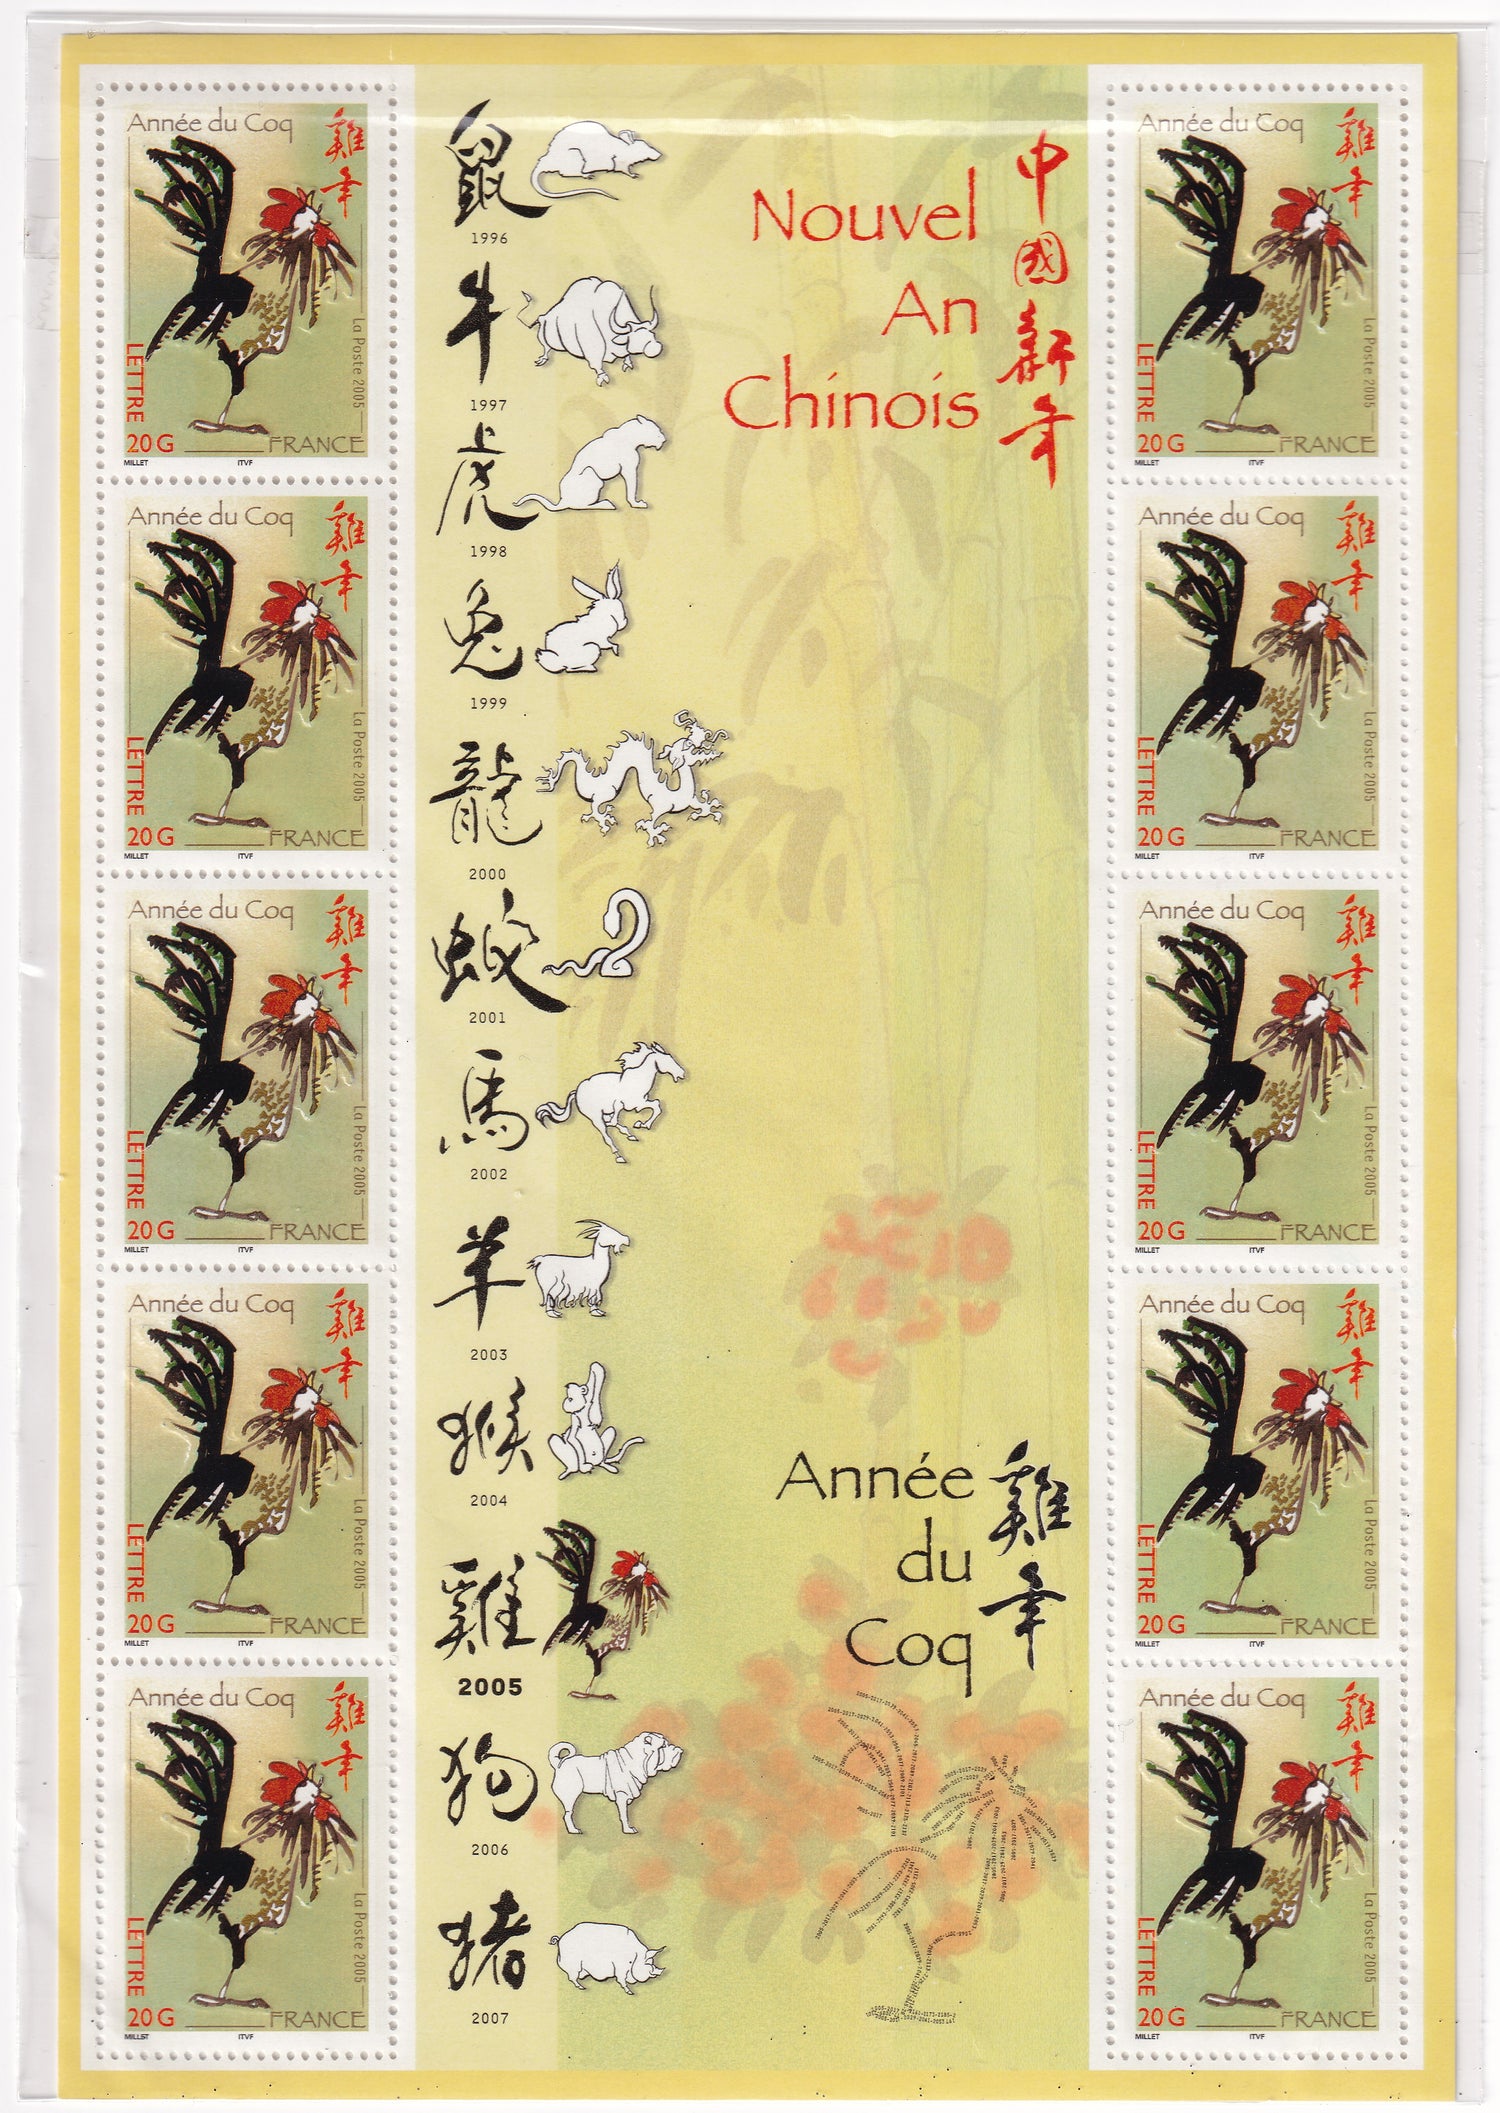 Année du Coq
雞年
La Poste 2005
LETTRE
20 G
FRANCE
MILLET ITVF
Année du Coq
雞年
La Poste 2005
LETTRE
20 G
FRANCE
MILLET ITVF
Année du Coq
雞年
La Poste 2005
LETTRE
20 G
FRANCE
MILLET ITVF
Année du Coq
雞年
La Poste 2005
LETTRE
20 G
FRANCE
MILLET ITVF
Année du Coq
雞年
La Poste 2005
LETTRE
20 G
FRANCE
MILLET ITVF
鼠
1996
牛
1997
虎
1998
兔
1999
龍
2000
蛇
2001
馬
2002
羊
2003
猴
2004
雞
2005
狗
2006
猪
2007
Nouvel
An
Chinois
中國新年
Année
du
Coq
雞年
Année du Coq
雞年
La Poste 2005
LETTRE
20 G
FRANCE
MILLET ITVF
Année du Coq
雞年
La Poste 2005
LETTRE
20 G
FRANCE
MILLET ITVF
Année du Coq
雞年
La Poste 2005
LETTRE
20 G
FRANCE
MILLET ITVF
Année du Coq
雞年
La Poste 2005
LETTRE
20 G
FRANCE
MILLET ITVF
Année du Coq
雞年
La Poste 2005
LETTRE
20 G
FRANCE
MILLET ITVF